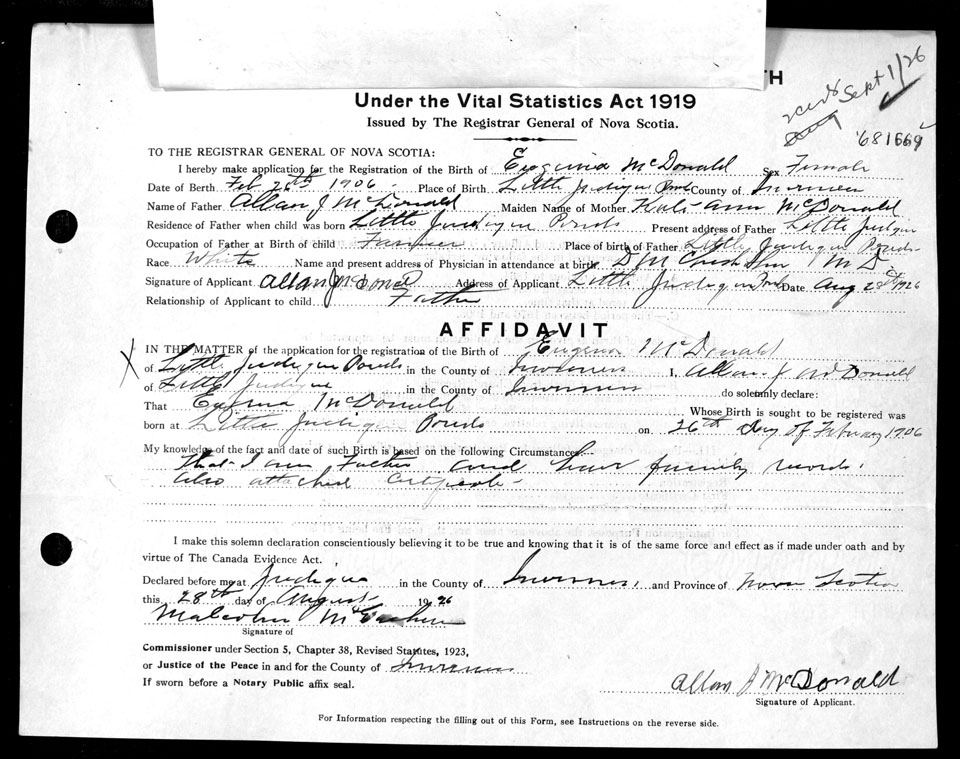 TH
Under the Vital Statistics Act 1919
Issued by The Registrar General of Nova Scotia.
Sept 1/26
681669
TO THE REGISTRAR GENERAL OF NOVA SCOTIA:
I hereby make application for the Registration of the Birth of McDonald Sex Female
Date of Birth Feb 26th 1906 Place of Birth Little Judique Ponds County of Inverness
Name of Father Allan J McDonald Maiden Name of Mother Kate Ann McDonald
Residence of Father when child was born Little Judique Ponds Present address of Father Little Judique
Occupation of Father at Birth of child Farmer Place of birth of Father Little Judique Ponds
Race White Name and present address of Physician in attendance at birth M D
Signature of Applicant Allan J McDonald Address of Applicant Little Judique Ponds Date Aug 28th 1926
Relationship of Applicant to child Father
AFFIDAVIT
X IN THE MATTER of the application for the registration of the Birth of Eugenia McDonald
of Little Judique Ponds in the County of Inverness I, Allan J McDonald
of Little Judique in the County of Inverness do solemnly declare:
That McDonald Whose Birth is sought to be registered was
born at Little Judique Ponds on 26th Day of February 1906
My knowledge of the fact and date of such Birth is based on the following Circumstances
That I am Father and have family records.
Also attached certificate
I make this solemn declaration conscientiously believing it to be true and knowing that it is of the same force and effect as if made under oath and by
virtue of The Canada Evidence Act.
Declared before me at Judique in the County of Inverness, and Province of Nova Scotia
this 28th day of August 1926
Malcolm
Signature of
Commissioner under Section 5, Chapter 38, Revised Statutes, 1923,
or Justice of the Peace in and for the County of Inverness
If sworn before a Notary Public affix seal.
Allan J McDonald
Signature of Applicant.
For Information respecting the filling out of this Form, see Instructions on the reverse side.